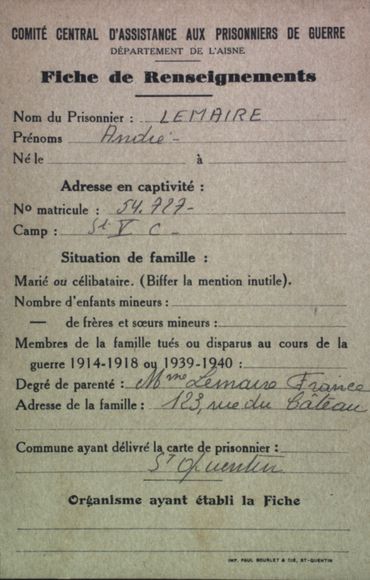 COMITÉ CENTRAL D'ASSISTANCE AUX PRISONNIERS DE GUERRE
DÉPARTEMENT DE L'AISNE
Fiche de Renseignements
Nom du Prisonnier : LEMAIRE
Prénoms André -
Né le à
Adresse en captivité :
No matricule : 54.727 -
Camp : St V C -
Situation de famille :
Marié ou célibataire. (Biffer la mention inutile).
Nombre d'enfants mineurs :
— de frères et sœurs mineurs :
Membres de la famille tués ou disparus au cours de la
guerre 1914-1918 ou 1939-1940 :
Degré de parenté : Mme Lemaire France
Adresse de la famille : 123, rue du Câteau
Commune ayant délivré la carte de prisonnier :
St Quentin
Organisme ayant établi la Fiche
IMP. PAUL BOURLET & CIE, ST-QUENTIN